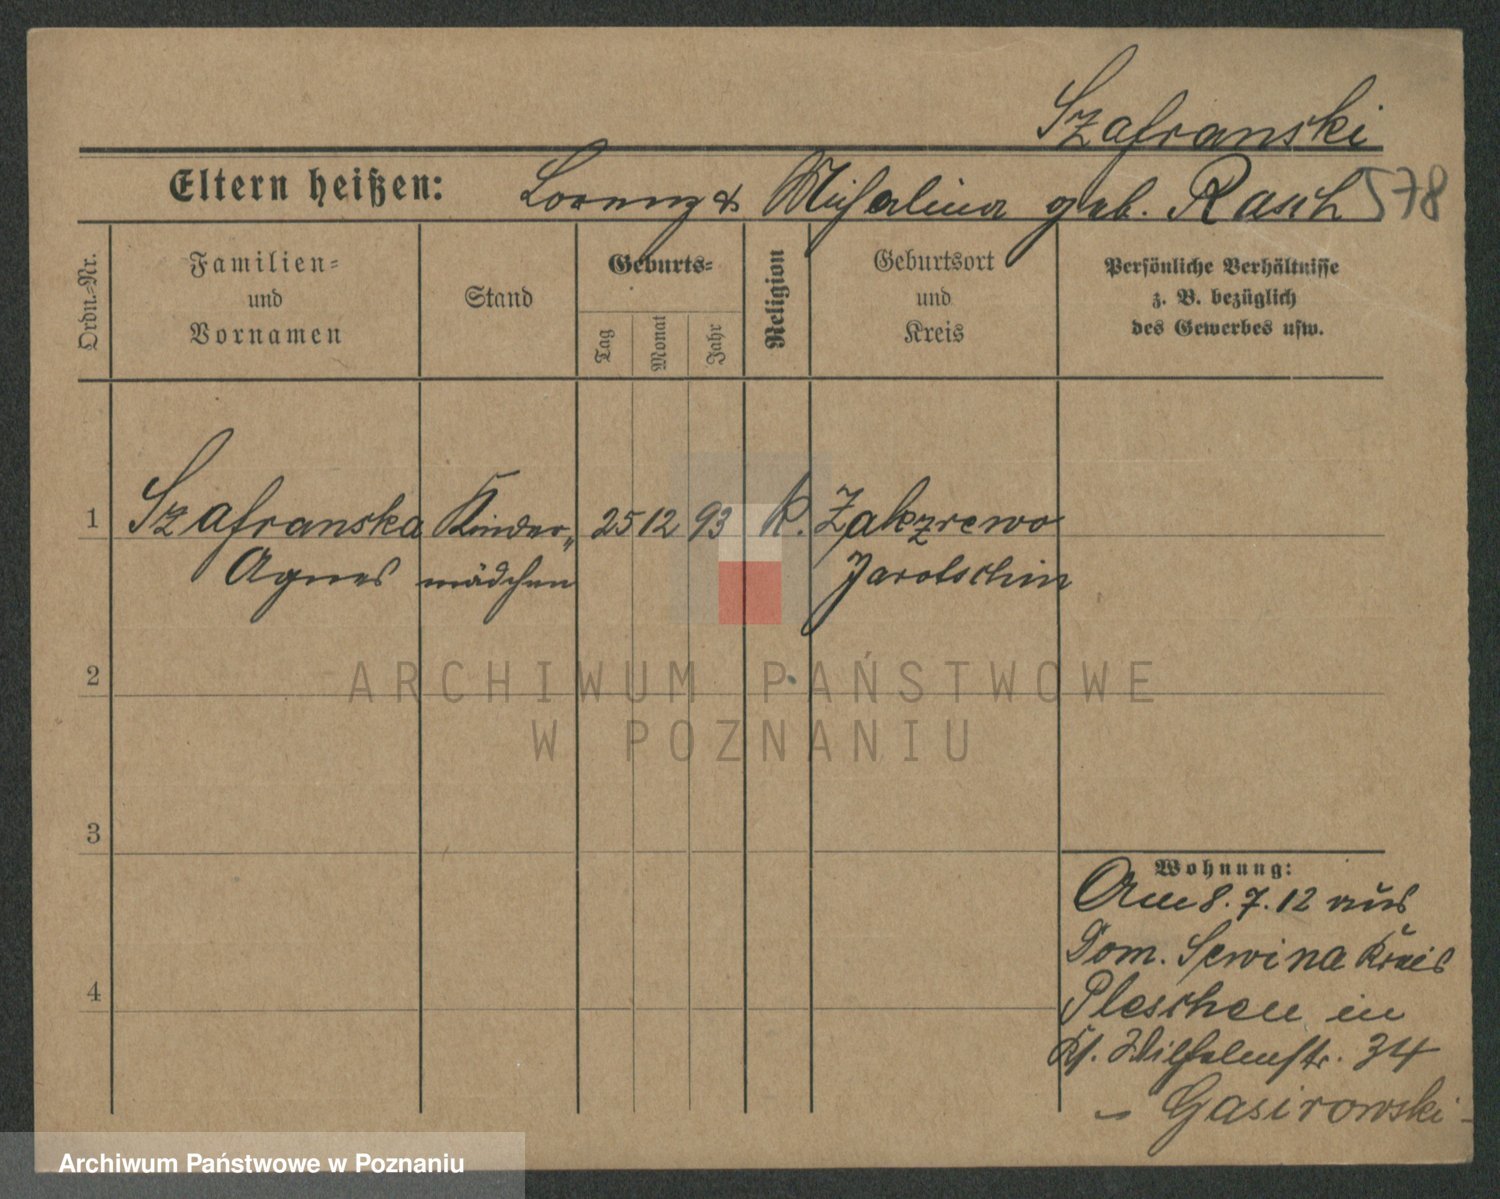 Szafranski
Eltern heißen: Lorenz & Michalina geb. Rasch 578
Ordn.-Nr.
Familien-
und
Vornamen
Stand
Geburts-
Tag
Monat
Jahr
Religion
Geburtsort
und
Kreis
Persönliche Verhältnisse
z. B. bezüglich
des Gewerbes usw.
1 Szafranska Kinder„ 25 12 93 k. Zakzrewo
Agnes mädchen Jarotschin
2
ARCHIWUM PAŃSTWOWE
W POZNANIU
3
Wohnung:
Am 8. 7. 12 aus
Dom. Sewina Kreis
4
Pleschen in
Wilhelmstr. 34
Gasirowski
Archiwum Państwowe w Poznaniu